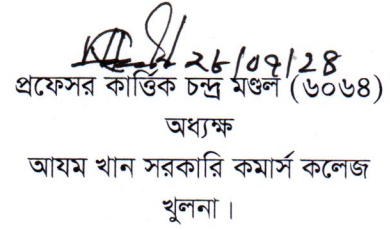 ২৮/০৭/২৪
প্রফেসর কার্ত্তিক চন্দ্র মণ্ডল (৬০৬৪)
অধ্যক্ষ
আযম খান সরকারি কমার্স কলেজ
খুলনা।